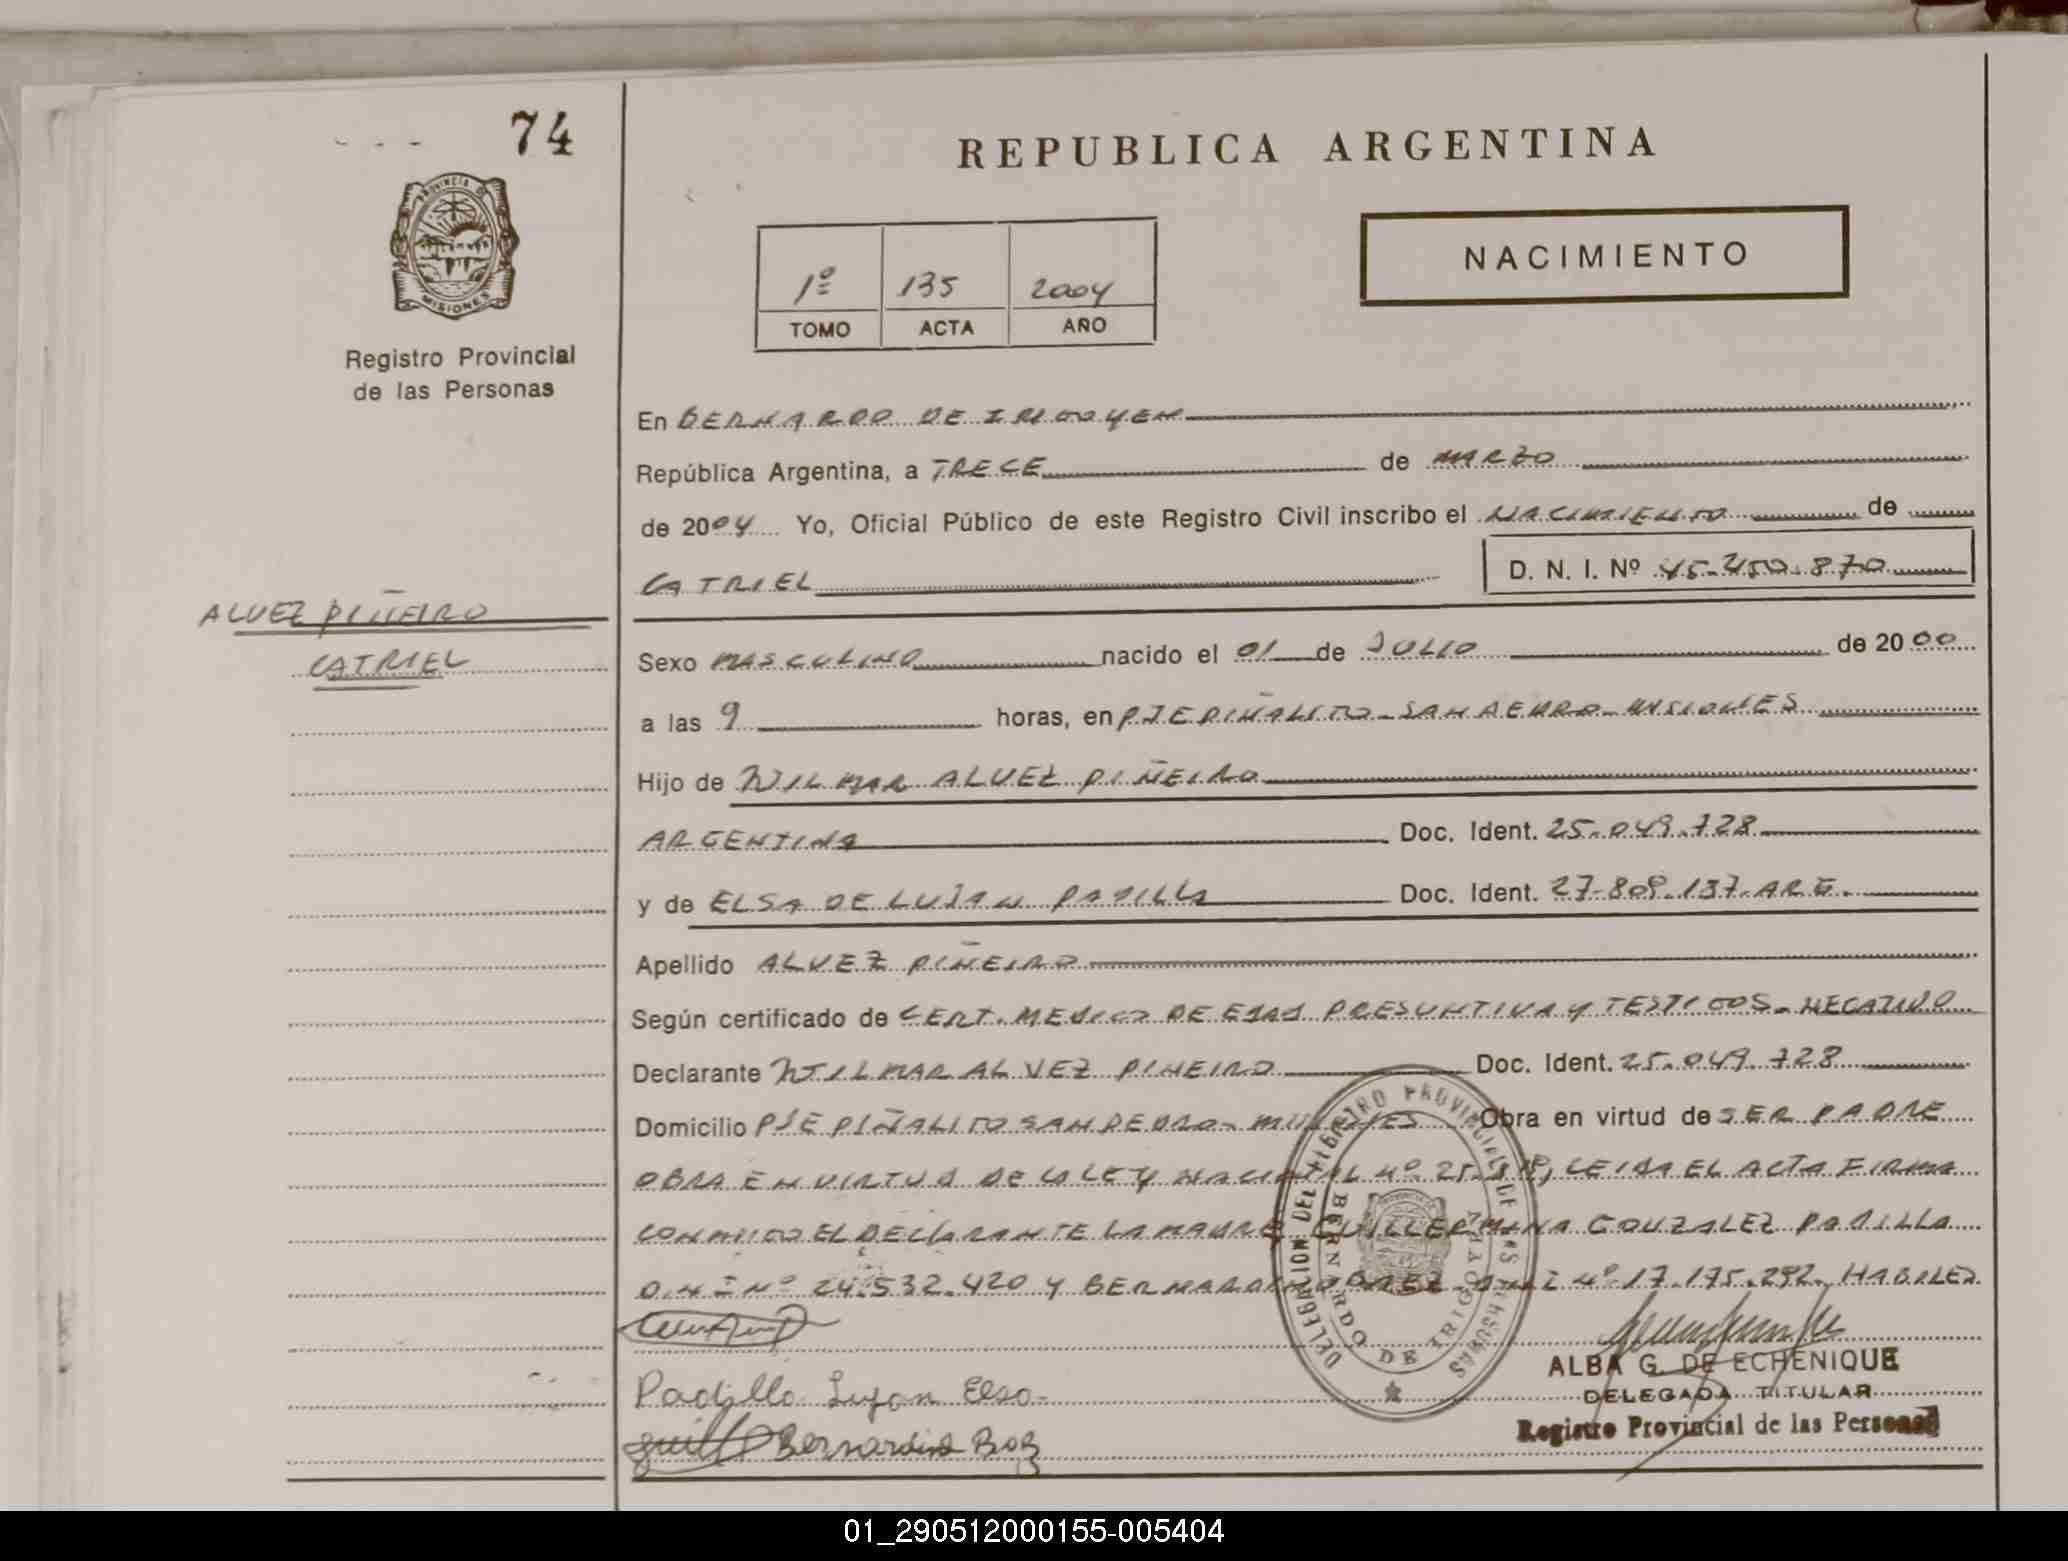 74
REPUBLICA ARGENTINA
PROVINCIA DE
MISIONES
Registro Provincial
de las Personas
NACIMIENTO
1º 135 2004
TOMO ACTA AÑO
En BERNARDO DE IRIGOYEN
República Argentina, a TRECE de MARZO
de 2004 Yo, Oficial Público de este Registro Civil inscribo el NACIMIENTO de
CATRIEL D. N. I. Nº 45.450.870
ALVEZ PIÑEIRO
CATRIEL
Sexo MASCULINO nacido el 01 de JULIO de 2000
a las 9 horas, en PJE PIÑALITO - SAN PEDRO - MISIONES
Hijo de WILMAR ALVEZ PIÑEIRO
ARGENTINA Doc. Ident. 25.049.728
y de ELSA DE LUJAN PADILLA Doc. Ident. 27.809.137 ARG.
Apellido ALVEZ PIÑEIRO
Según certificado de CERT. MEDICO DE EDAD PRESUNTIVA Y TESTIGOS - NEGATIVO
Declarante WILMAR ALVEZ PIÑEIRO Doc. Ident. 25.049.728
Domicilio PJE PIÑALITO SAN PEDRO - MISIONES Obra en virtud de SER PADRE
OBRA EN VIRTUD DE LA LEY NACIONAL Nº 25. LEIDA EL ACTA FIRMA
CONMIGO EL DECLARANTE LA MADRE GUILLERMINA GONZALEZ PADILLA
D.N.I Nº 24.532.420 Y BERNARDINO D.N.I Nº 17.175.292. HABILES
Padilla Lujan Elsa
Bernardino
DELEGACION DEL REGISTRO PROVINCIAL DE LAS PERSONAS
BERNARDO DE IRIGOYEN
ALBA G. DE ECHENIQUE
DELEGADA TITULAR
Registro Provincial de las Personas
01_290512000155-005404